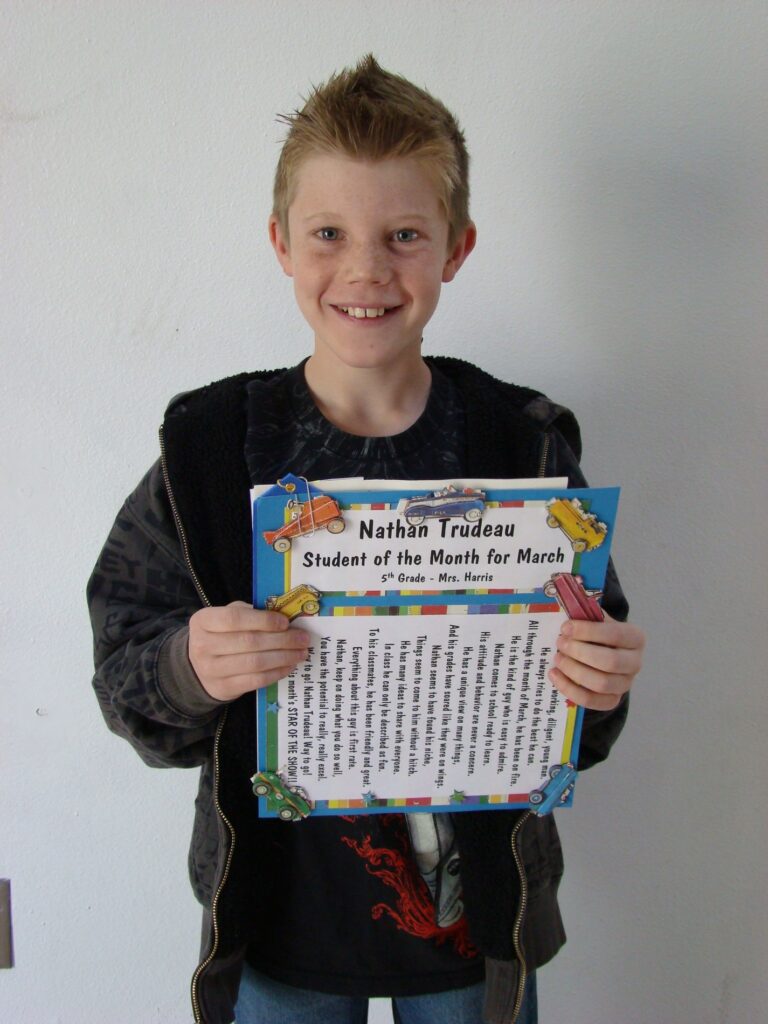 Nathan Trudeau
Student of the Month for March
5th Grade - Mrs. Harris
working, diligent, young man.
He always tries to do the best he can.
All through the month of March, he has been on fire.
He is the kind of guy who is easy to admire.
Nathan comes to school ready to learn.
His attitude and behavior are never a concern.
He has a unique view on many things,
And his grades have soared like they were on wings.
Nathan seems to have found his niche,
Things seem to come to him without a hitch.
He has many ideas to share with everyone.
In class he can only be described as fun.
To his classmates, he has been friendly and great.
Everything about this guy is first rate.
Nathan, keep on doing what you do so well,
You have the potential to really, really excel.
Way to go! Nathan Trudeau! Way to go!
month's STAR OF THE SHOW!!